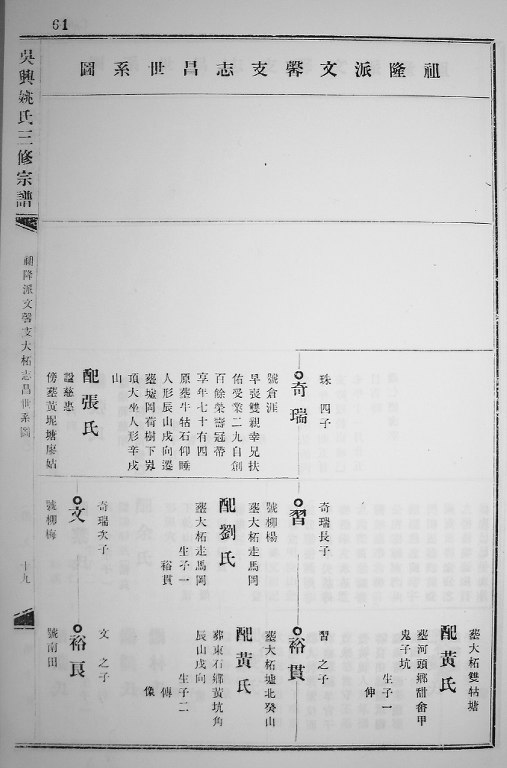 61
祖隆派文馨支志昌世系圖
珠 四子
奇瑞
號倉涯
早喪雙親幸兄扶
佑受業二九自創
百餘榮壽冠帶
享年七十有四
原塟牛牯石仰睡
人形辰山戌向遷
塟墟岡荷樹下
頂大坐人形辛戌
山
配張氏
諡慈惠
傍塟黃坭塘廖姑
奇瑞長子
習
號柳楊
塟大柘走馬岡
配劉氏
塟大柘走馬岡
生子一
裕貫
奇瑞次子
文
號柳梅
塟大柘雙牯塘
配黃氏
塟河頭鄉甜畬甲
鬼子坑
生子一
伸
習 之子
裕貫
塟大柘墟北癸山
配黃氏
葬東石鄉黃坑角
辰山戌向
生子二
傳
像
文 之子
裕良
號南田
吳興姚氏三修宗譜
祖隆派文馨支大柘志昌世系圖
十九